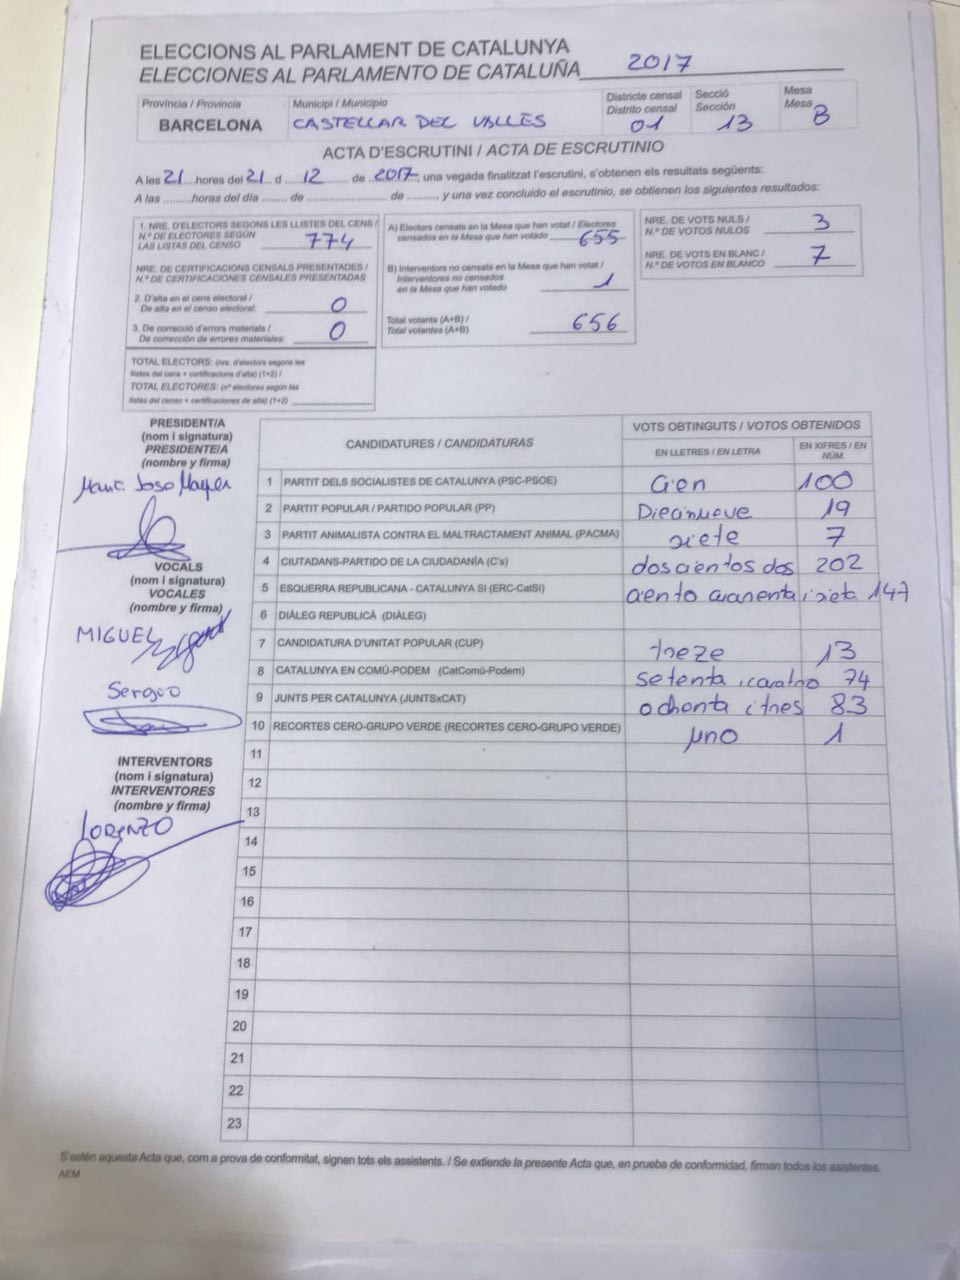 ELECCIONS AL PARLAMENT DE CATALUNYA
ELECCIONES AL PARLAMENTO DE CATALUÑA 2017
Província / Provincia
BARCELONA
Municipi / Municipio
CASTELLAR DEL VALLÈS
Districte censal
Distrito censal
01
Secció
Sección
13
Mesa
Mesa
B
ACTA D'ESCRUTINI / ACTA DE ESCRUTINIO
A les 21 hores del 21 d 12 de 2017, una vegada finalitzat l'escrutini, s'obtenen els resultats següents:
A las ......... horas del día ....... de .................. de ........, y una vez concluido el escrutinio, se obtienen los siguientes resultados:
1. NRE. D'ELECTORS SEGONS LES LLISTES DEL CENS /
N.º DE ELECTORES SEGÚN
LAS LISTAS DEL CENSO 774
NRE. DE CERTIFICACIONS CENSALS PRESENTADES /
N.º DE CERTIFICACIONES CENSALES PRESENTADAS
2. D'alta en el cens electoral /
De alta en el censo electoral: 0
3. De correcció d'errors materials /
De corrección de errores materiales: 0
TOTAL ELECTORS: (nre. d'electors segons les
llistes del cens + certificacions d'alta) (1+2) /
TOTAL ELECTORES: (nº electores según las
listas del censo + certificaciones de alta) (1+2)
A) Electors censats en la Mesa que han votat / Electores
censados en la Mesa que han votado 655
B) Interventors no censats en la Mesa que han votat /
Interventores no censados
en la Mesa que han votado 1
Total votants (A+B) /
Total votantes (A+B) 656
NRE. DE VOTS NULS /
N.º DE VOTOS NULOS 3
NRE. DE VOTS EN BLANC /
N.º DE VOTOS EN BLANCO 7
PRESIDENT/A
(nom i signatura)
PRESIDENTE/A
(nombre y firma)
VOCALS
(nom i signatura)
VOCALES
(nombre y firma)
MIGUEL
Sergio
INTERVENTORS
(nom i signatura)
INTERVENTORES
(nombre y firma)
LORENZO
CANDIDATURES / CANDIDATURAS
VOTS OBTINGUTS / VOTOS OBTENIDOS
EN LLETRES / EN LETRA
EN XIFRES / EN NÚM.
1 PARTIT DELS SOCIALISTES DE CATALUNYA (PSC-PSOE) Cien 100
2 PARTIT POPULAR / PARTIDO POPULAR (PP) Diecinueve 19
3 PARTIT ANIMALISTA CONTRA EL MALTRACTAMENT ANIMAL (PACMA) siete 7
4 CIUTADANS-PARTIDO DE LA CIUDADANÍA (C's) doscientos dos 202
5 ESQUERRA REPUBLICANA - CATALUNYA SI (ERC-CatSí) ciento cuarenta i siete 147
6 DIÀLEG REPUBLICÀ (DIÀLEG)
7 CANDIDATURA D'UNITAT POPULAR (CUP) treze 13
8 CATALUNYA EN COMÚ-PODEM (CatComú-Podem) setenta i cuatro 74
9 JUNTS PER CATALUNYA (JUNTSxCAT) ochenta i tres 83
10 RECORTES CERO-GRUPO VERDE (RECORTES CERO-GRUPO VERDE) uno 1
11
12
13
14
15
16
17
18
19
20
21
22
23
S'estén aquesta Acta que, com a prova de conformitat, signen tots els assistents. / Se extiende la presente Acta que, en prueba de conformidad, firman todos los asistentes.
AEM